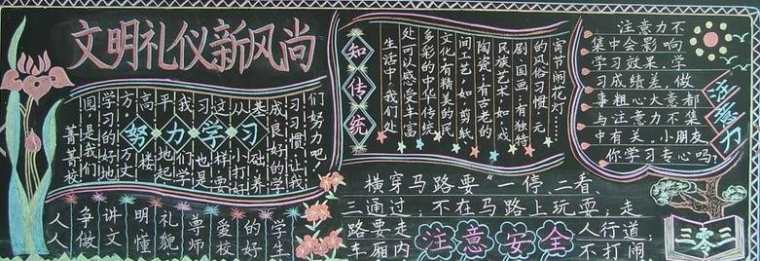 文明礼仪新风尚
菁菁校
园是我们
学习的好地
方万丈
高楼
平地起
我们学
习也是
这样要
从打好
基础养
成良好的学
习习惯,让我
们努力吧
努力学习
人人
争做
讲文
明懂
礼貌
尊师
爱校
的好
学生
知传统
生活中,我们处
处可以感受丰富
多彩的中华传统
文化:有精美的民
间工艺,如:剪纸、
陶瓷;有古老的
民族艺术,如:戏
剧、国画;有独特
的风俗习惯:元
宵节闹花灯……
注意力不
集中会影响
学习效果,学
习成绩差,做
事粗心大意都
与注意力不集
中有关,小朋友
你学习专心吗?
注意力
横穿马路要“一停、二看、
三通过,不在马路上玩耍,走
路要走人行道,
车厢内不打闹
注意安全
三零三